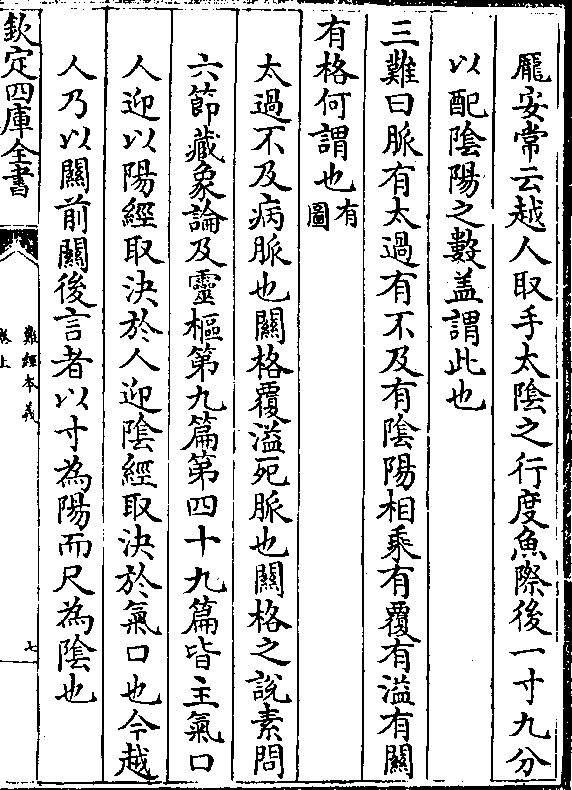 龎安常云越人取手太陰之行度魚際後一寸九分
以配陰陽之數盖謂此也
三難曰脈有太過有不及有陰陽相乘有覆有溢有關
有格何謂也有圖
太過不及病脈也關格覆溢死脈也關格之說素問
六節藏象論及靈樞第九篇第四十九篇皆主氣口
人迎以陽經取決於人迎陰經取決於氣口也今越
人乃以關前關後言者以寸為陽而尺為陰也
欽定四庫全書
難經本義
卷上
七